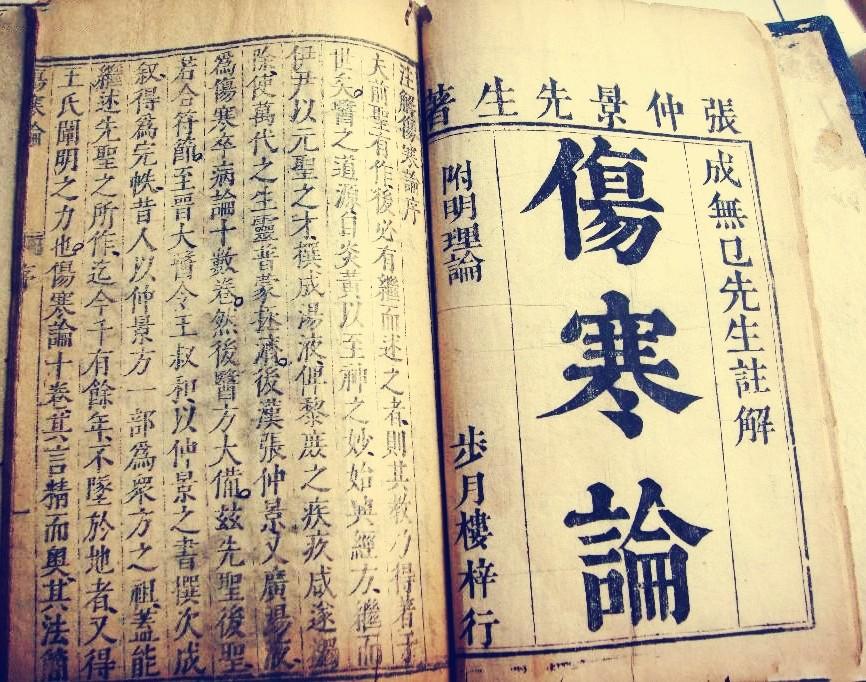 張仲景先生著
成無已先生註解
傷寒論
附明理論
步月樓梓行
注解傷寒論序
夫前聖有作後必有繼而述之者則其教乃得著于
世矣。醫之道源自炎黃以至神之妙始興經方。繼而
伊尹以元聖之才撰成湯液俾黎庶之疾疢咸遂蠲
除使萬代之生靈普蒙拯濟。後漢張仲景又廣湯液
為傷寒卒病論十數卷。然後醫方大備。茲先聖後聖
若合符節。至晉太醫令王叔和以仲景之書撰次成
敘得為完帙。昔人以仲景方一部為眾方之祖。蓋能
繼述先聖之所作。迄今千有餘年。不墜於地者。又得
王氏闡明之力也。傷寒論十卷其言精而奧其法簡
傷寒論
序